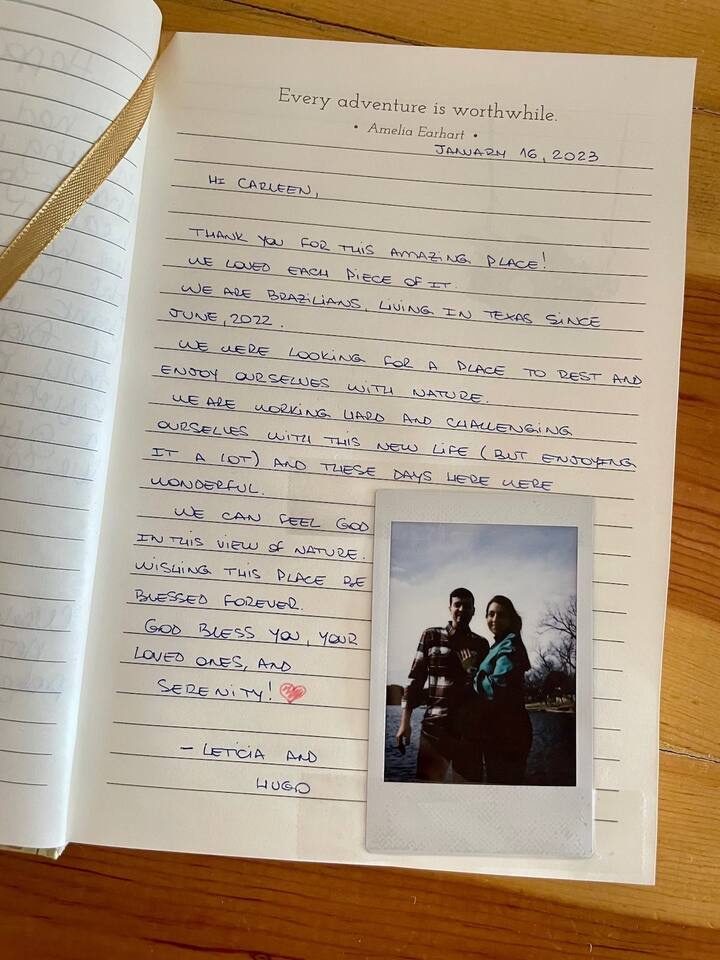 Every adventure is worthwhile.
• Amelia Earhart •
JANUARY 16, 2023
HI CARLEEN,
THANK YOU FOR THIS AMAZING PLACE!
WE LOVED EACH PIECE OF IT.
WE ARE BRAZILIANS, LIVING IN TEXAS SINCE
JUNE, 2022.
WE WERE LOOKING FOR A PLACE TO REST AND
ENJOY OURSELVES WITH NATURE.
WE ARE WORKING HARD AND CHALLENGING
OURSELVES WITH THIS NEW LIFE (BUT ENJOYING
IT A LOT) AND THESE DAYS HERE WERE
WONDERFUL.
WE CAN FEEL GOD
IN THIS VIEW OF NATURE.
WISHING THIS PLACE BE
BLESSED FOREVER.
GOD BLESS YOU, YOUR
LOVED ONES, AND
SERENITY!
- LETICIA AND
HUGO